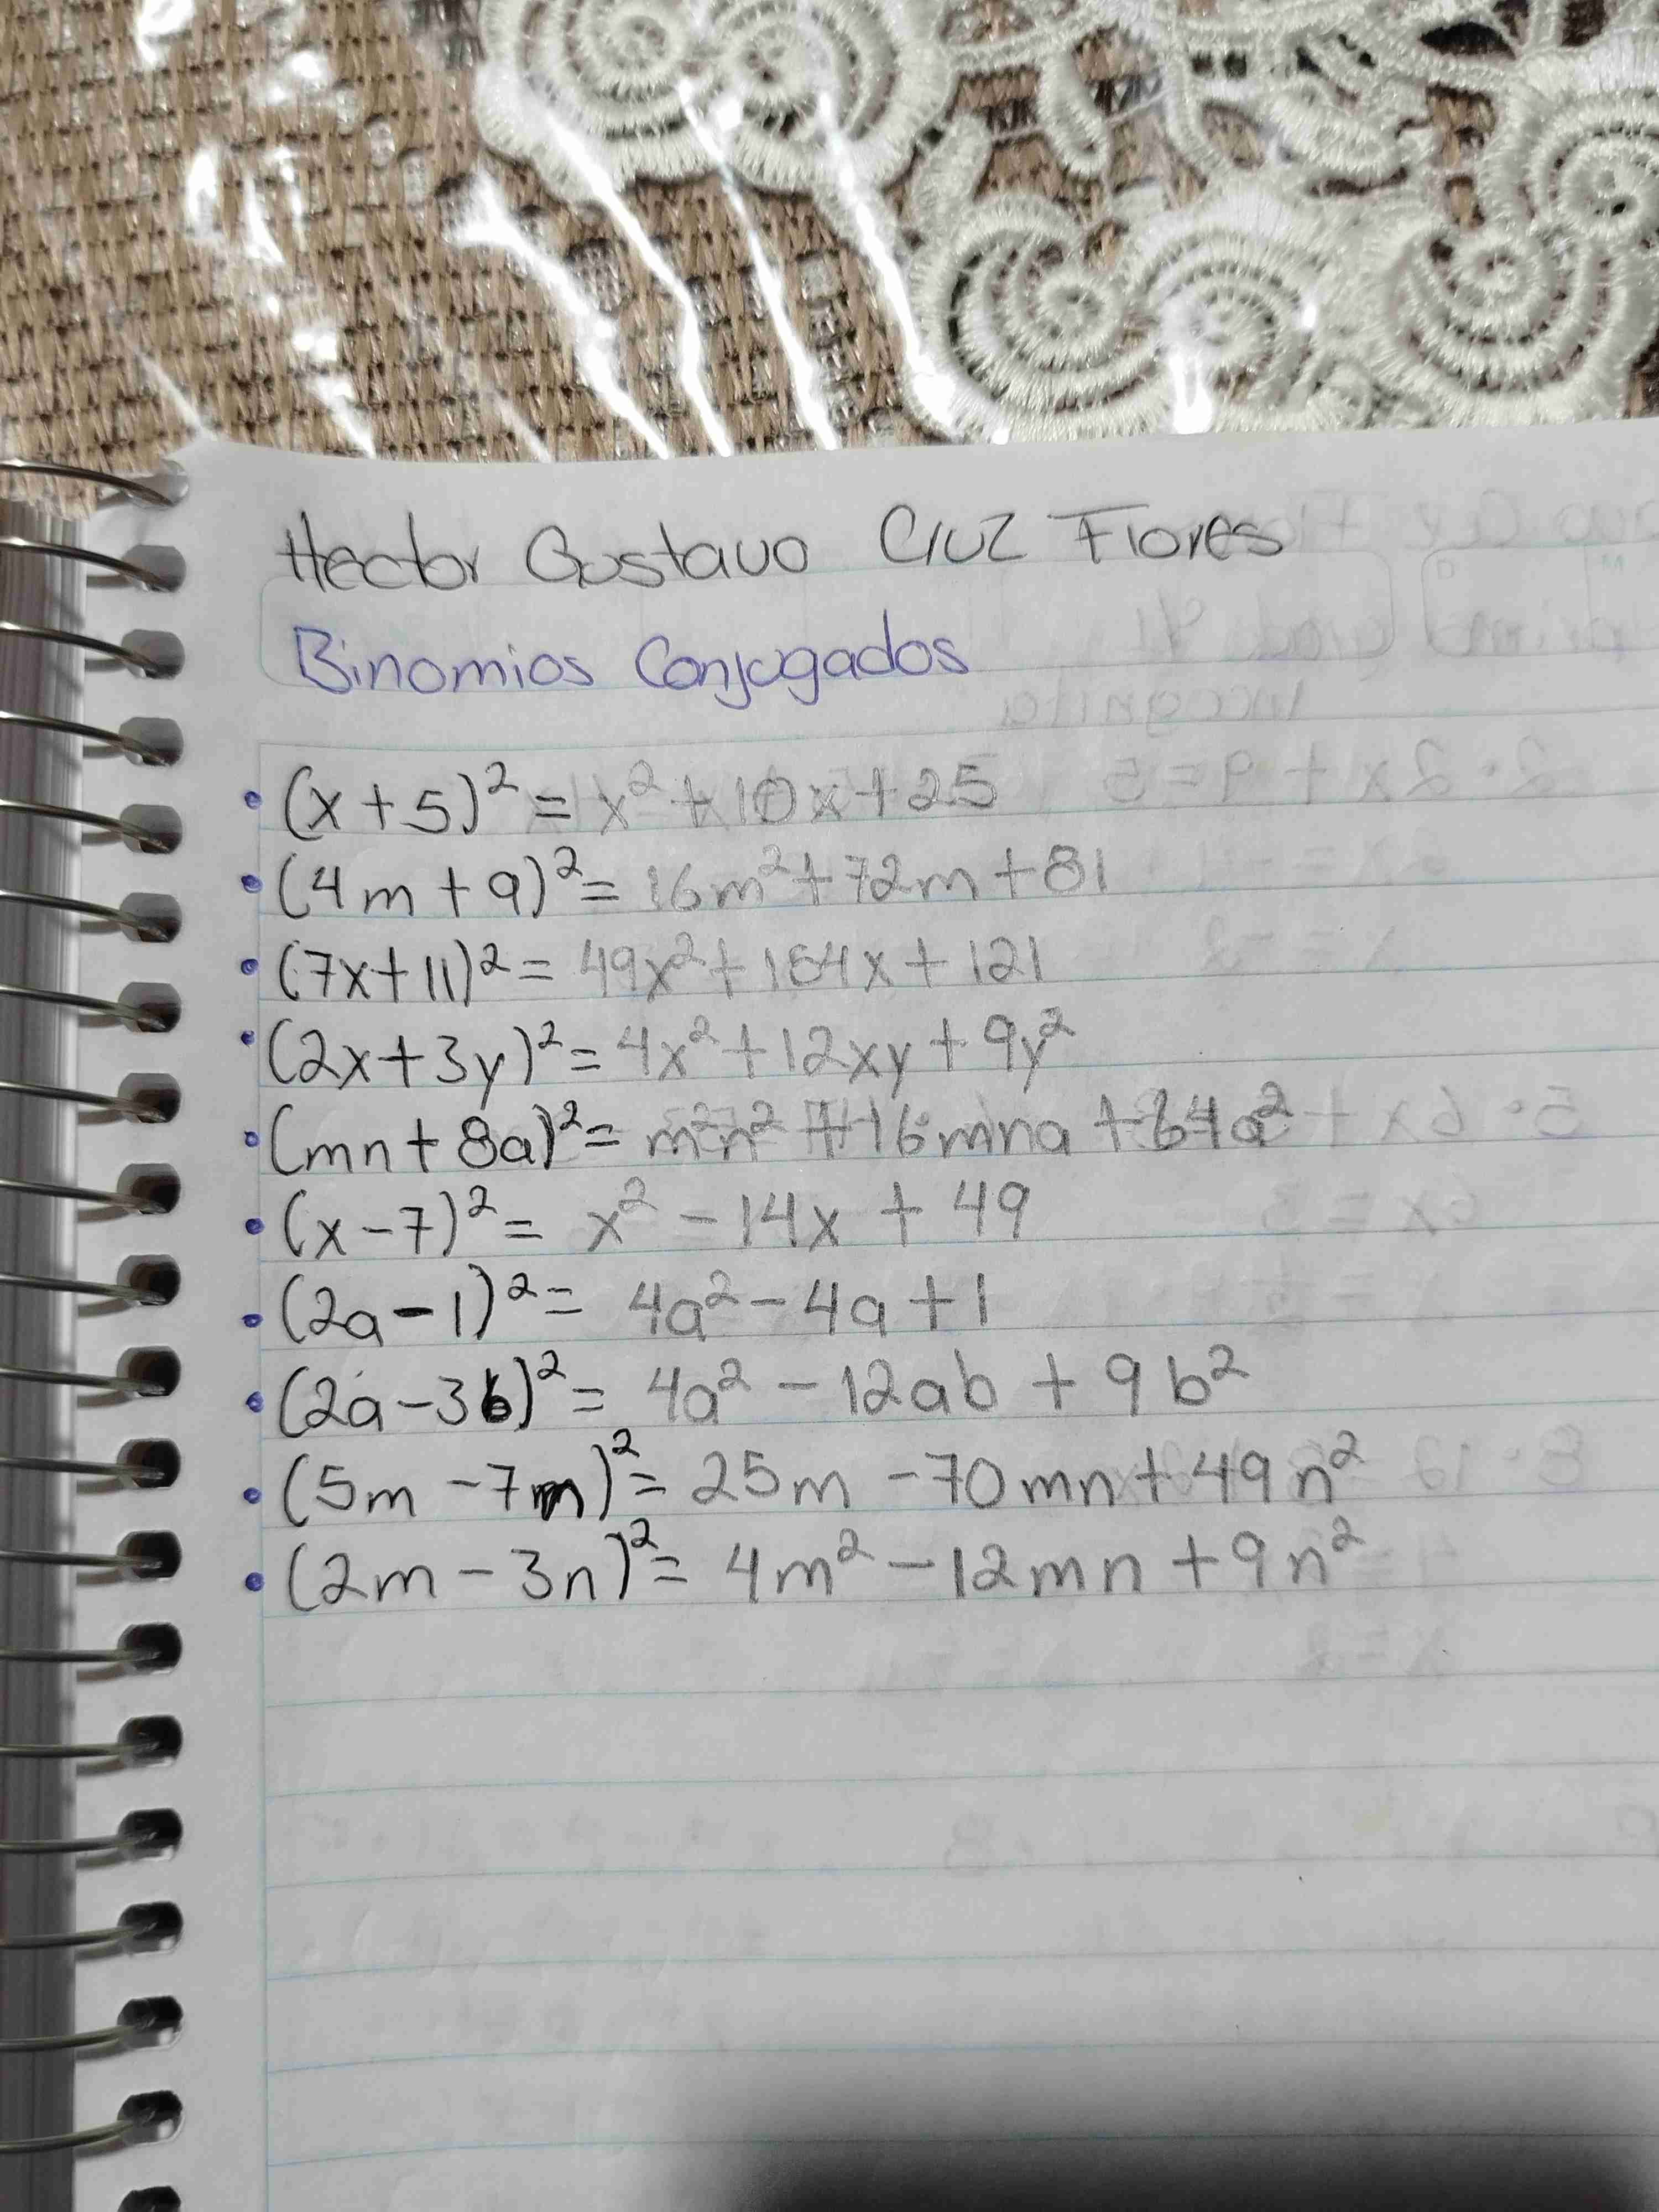 Hector Gustavo Cruz Flores
Binomios Conjugados
• (x+5)² = x² + 10x + 25
• (4m + 9)² = 16m² + 72m + 81
• (7x+11)² = 49x² + 154x + 121
• (2x+3y)² = 4x² + 12xy + 9y²
• (mn + 8a)² = m²n² + 16mna + 64a²
• (x-7)² = x² - 14x + 49
• (2a-1)² = 4a² - 4a + 1
• (2a-3b)² = 4a² - 12ab + 9b²
• (5m - 7n)² = 25m - 70mn + 49n²
• (2m - 3n)² = 4m² - 12mn + 9n²